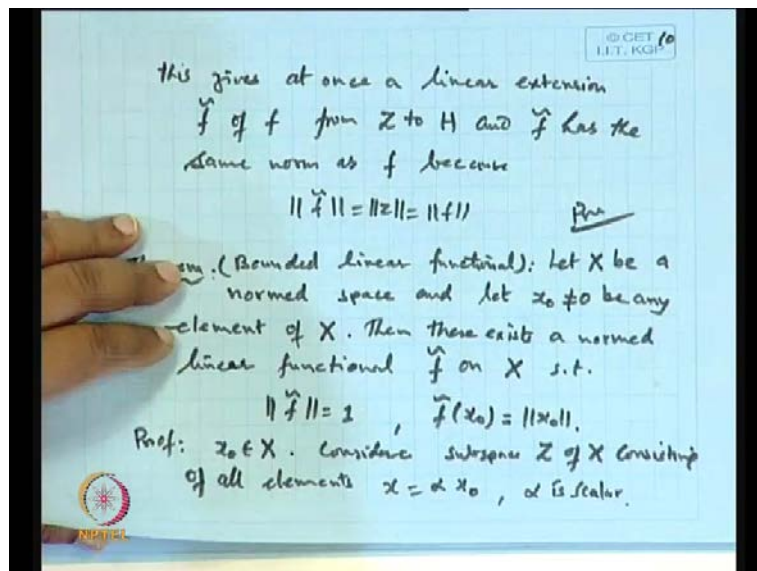 © CET
I.I.T. KGP
10
this gives at once a linear extension
f̃ of f from Z to H and f̃ has the
same norm as f because
||f̃|| = ||z|| = ||f||
em. (Bounded linear functional): Let X be a
normed space and let x₀ ≠ 0 be any
element of X. Then there exists a normed
linear functional f̃ on X s.t.
||f̃|| = 1 , f̃(x₀) = ||x₀||.
Proof: x₀ ∈ X. Consider subspace Z of X consisting
of all elements x = α x₀ , α is scalar.
NPTEL